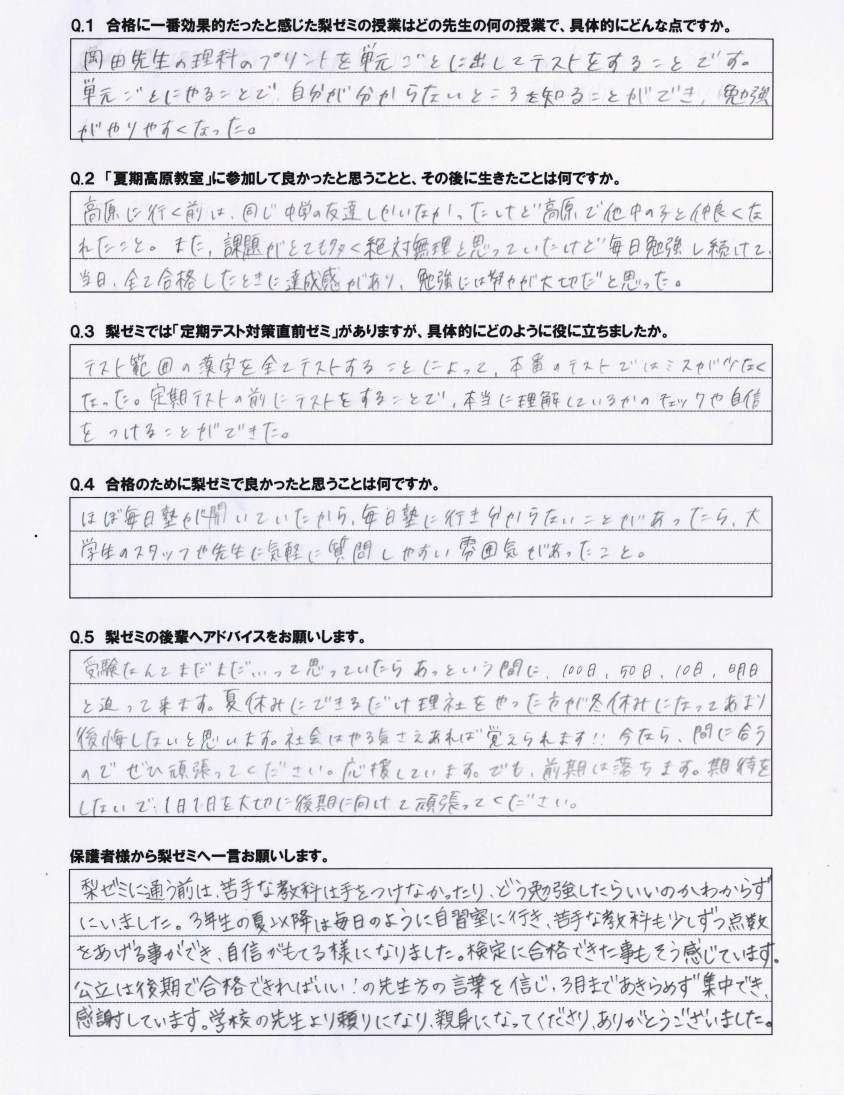 Q.1 合格に一番効果的だったと感じた梨ゼミの授業はどの先生の何の授業で、具体的にどんな点ですか。
岡田先生の理科のプリントを単元ごとに出してテストをすることです。
単元ごとにやることで、自分が分からないところを知ることができ、勉強
がやりやすくなった。
Q.2 「夏期高原教室」に参加して良かったと思うことと、その後に生きたことは何ですか。
高原に行く前は、同じ中学の友達しかいなかったけど高原で他中の子と仲良くな
れたこと。また、課題がとても多く絶対無理と思っていたけど毎日勉強し続けて、
当日、全て合格したときに達成感があり、勉強には努力が大切だと思った。
Q.3 梨ゼミでは「定期テスト対策直前ゼミ」がありますが、具体的にどのように役に立ちましたか。
テスト範囲の漢字を全てテストすることによって、本番のテストではミスが少なく
なった。定期テストの前にテストをすることで、本当に理解しているかのチェックや自信
をつけることができた。
Q.4 合格のために梨ゼミで良かったと思うことは何ですか。
ほぼ毎日塾が開いていたから、毎日塾に行き分からないことがあったら、大
学生のスタッフや先生に気軽に質問しやすい雰囲気があったこと。
Q.5 梨ゼミの後輩へアドバイスをお願いします。
受験なんてまだまだ…って思っていたらあっという間に、100日、50日、10日、明日
と迫って来ます。夏休みにできるだけ理社をやった方が冬休みになってあまり
後悔しないと思います。社会はやる気さえあれば覚えられます!! 今なら、間に合う
のでぜひ頑張ってください。応援しています。でも、前期は落ちます。期待を
しないで、1日1日を大切に後期に向けて頑張ってください。
保護者様から梨ゼミへ一言お願いします。
梨ゼミに通う前は、苦手な教科は手をつけなかったり、どう勉強したらいいのかわからず
にいました。3年生の夏以降は毎日のように自習室に行き、苦手な教科も少しずつ点数
をあげる事ができ、自信がもてる様になりました。検定に合格できた事もそう感じています。
公立は後期で合格できればいい!の先生方の言葉を信じ、3月まであきらめず集中でき、
感謝しています。学校の先生より頼りになり、親身になってくださり、ありがとうございました。